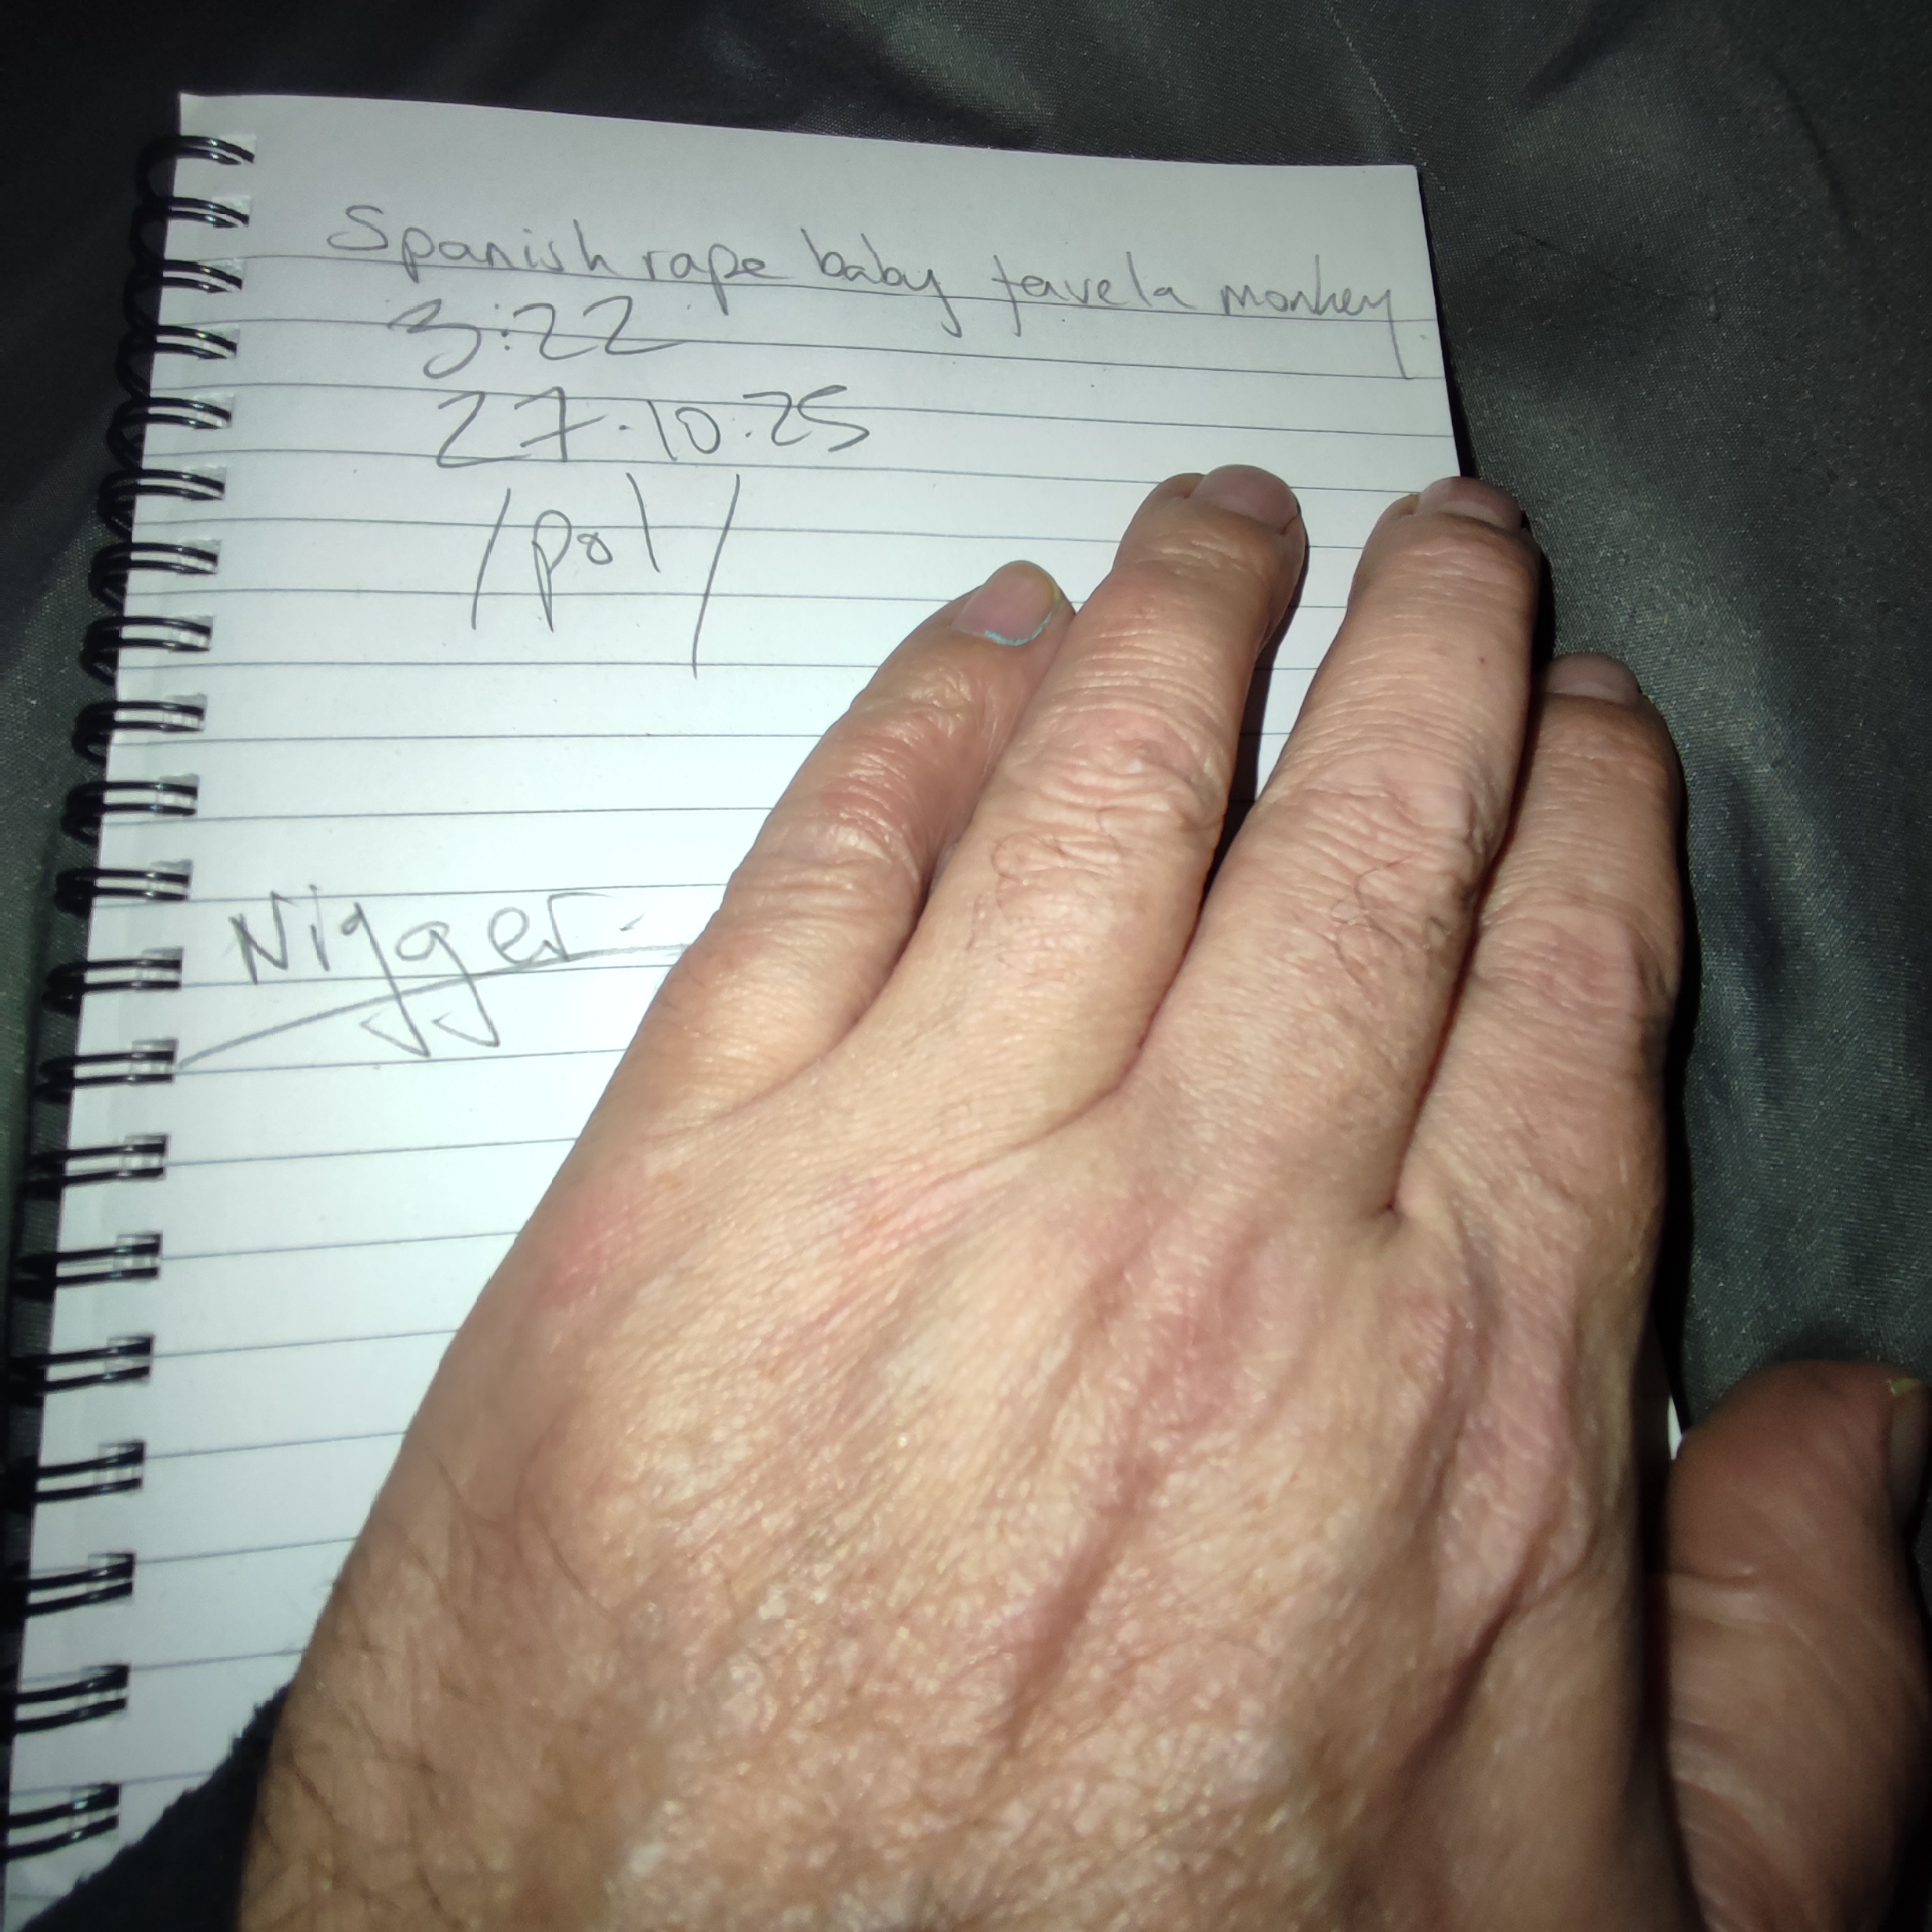 Spanish rape baby favela monkey
3:22
27.10.25
/pol/
Nigger